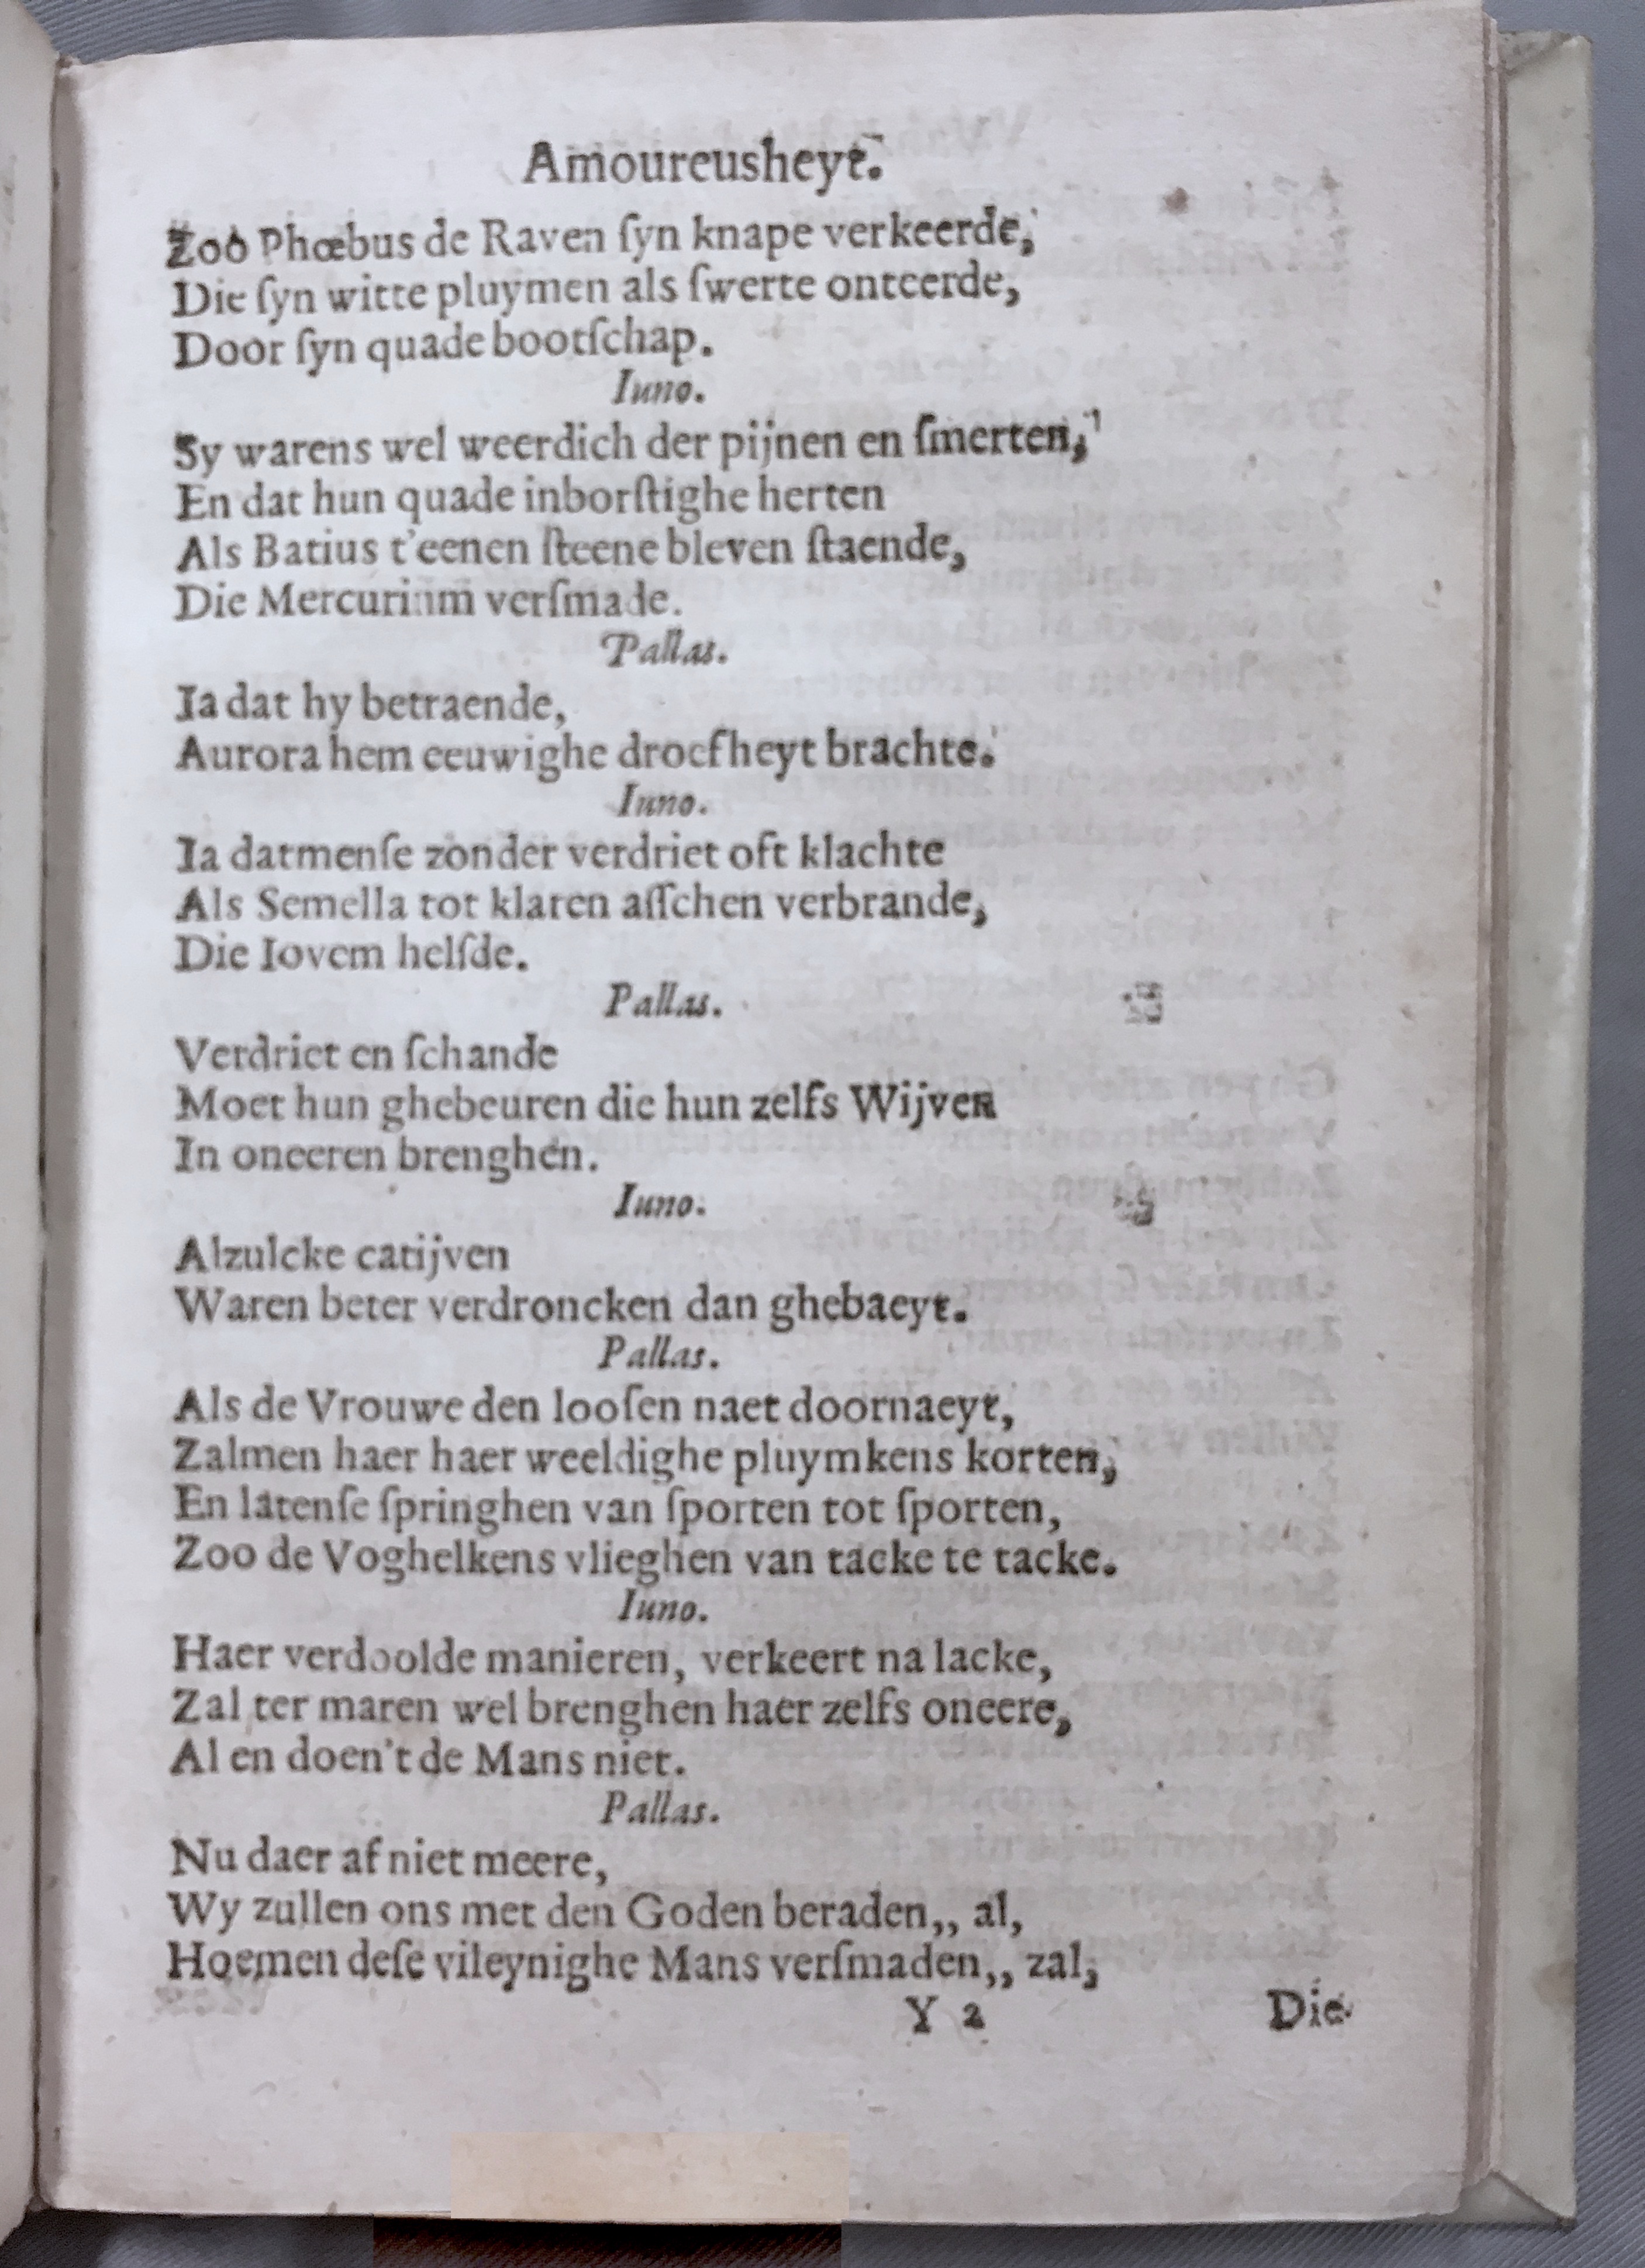 Amoureusheyt.
Zoo Phœbus de Raven ſyn knape verkeerde,
Die ſyn witte pluymen als ſwerte onteerde,
Door ſyn quade bootſchap.
Iuno.
Sy warens wel weerdich der pijnen en ſmerten,
En dat hun quade inborſtighe herten
Als Batius t'eenen ſteene bleven ſtaende,
Die Mercurium verſmade.
Pallas.
Ia dat hy betraende,
Aurora hem eeuwighe droefheyt brachte.
Iuno.
Ia datmenſe zonder verdriet oft klachte
Als Semella tot klaren aſſchen verbrande,
Die Iovem helſde.
Pallas.
Verdriet en ſchande
Moet hun ghebeuren die hun zelfs Wijven
In oneeren brenghen.
Iuno.
Alzulcke catijven
Waren beter verdroncken dan ghebaeyt.
Pallas.
Als de Vrouwe den looſen naet doornaeyt,
Zalmen haer haer weeldighe pluymkens korten,
En latenſe ſpringhen van ſporten tot ſporten,
Zoo de Voghelkens vlieghen van tacke te tacke.
Iuno.
Haer verdoolde manieren, verkeert na lacke,
Zal ter maren wel brenghen haer zelfs oneere,
Al en doen't de Mans niet.
Pallas.
Nu daer af niet meere,
Wy zullen ons met den Goden beraden,, al,
Hoemen deſe vileynighe Mans verſmaden,, zal,
Y 2 Die